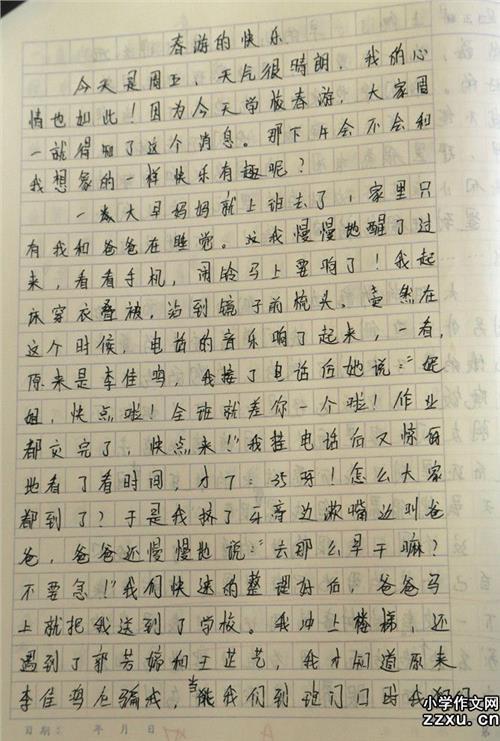 春游的快乐
今天是周五，天气很晴朗，我的心
情也如此！因为今天学校春游，大家周
一就得知了这个消息。那下午会不会和
我想象的一样快乐有趣呢？
一大早妈妈就上班去了，家里只
有我和爸爸在睡觉。我慢慢地醒了过
来，看看手机，闹铃马上要响了！我起
床穿衣叠被，站到镜子前梳头。竟然在
这个时候，电话的音乐响了起来，一看，
原来是李佳鸣，我接了电话后她说："姐
姐，快点啦！全班就差你一个啦！作业
都交完了，快点来！"我挂电话后又惊讶
地看了看时间，才7：35呀！怎么大家
都到了？于是我挤了牙膏边漱嘴边叫爸
爸，爸爸还慢慢地说："去那么早干嘛？
不要急！"我们快速的整理好后，爸爸马
上就把我送到了学校。我冲上楼梯，还
遇到了郭芳婷和王芷艺，我才知道原来
李佳鸣在骗我，当我们到班门口时我
日期： 年 月 日
小学作文网
zzxu.cn